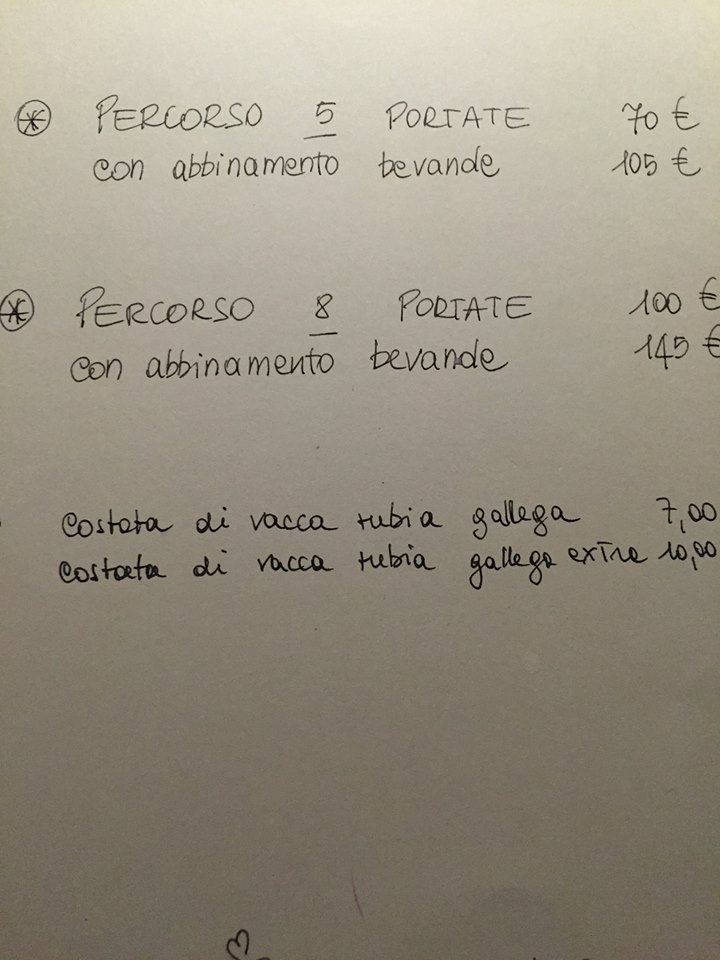 PERCORSO 5 PORTATE 70 €
con abbinamento bevande 105 €
PERCORSO 8 PORTATE 100 €
con abbinamento bevande 145 €
costata di vacca rubia gallega 7,00
costata di vacca rubia gallega extra 10,00